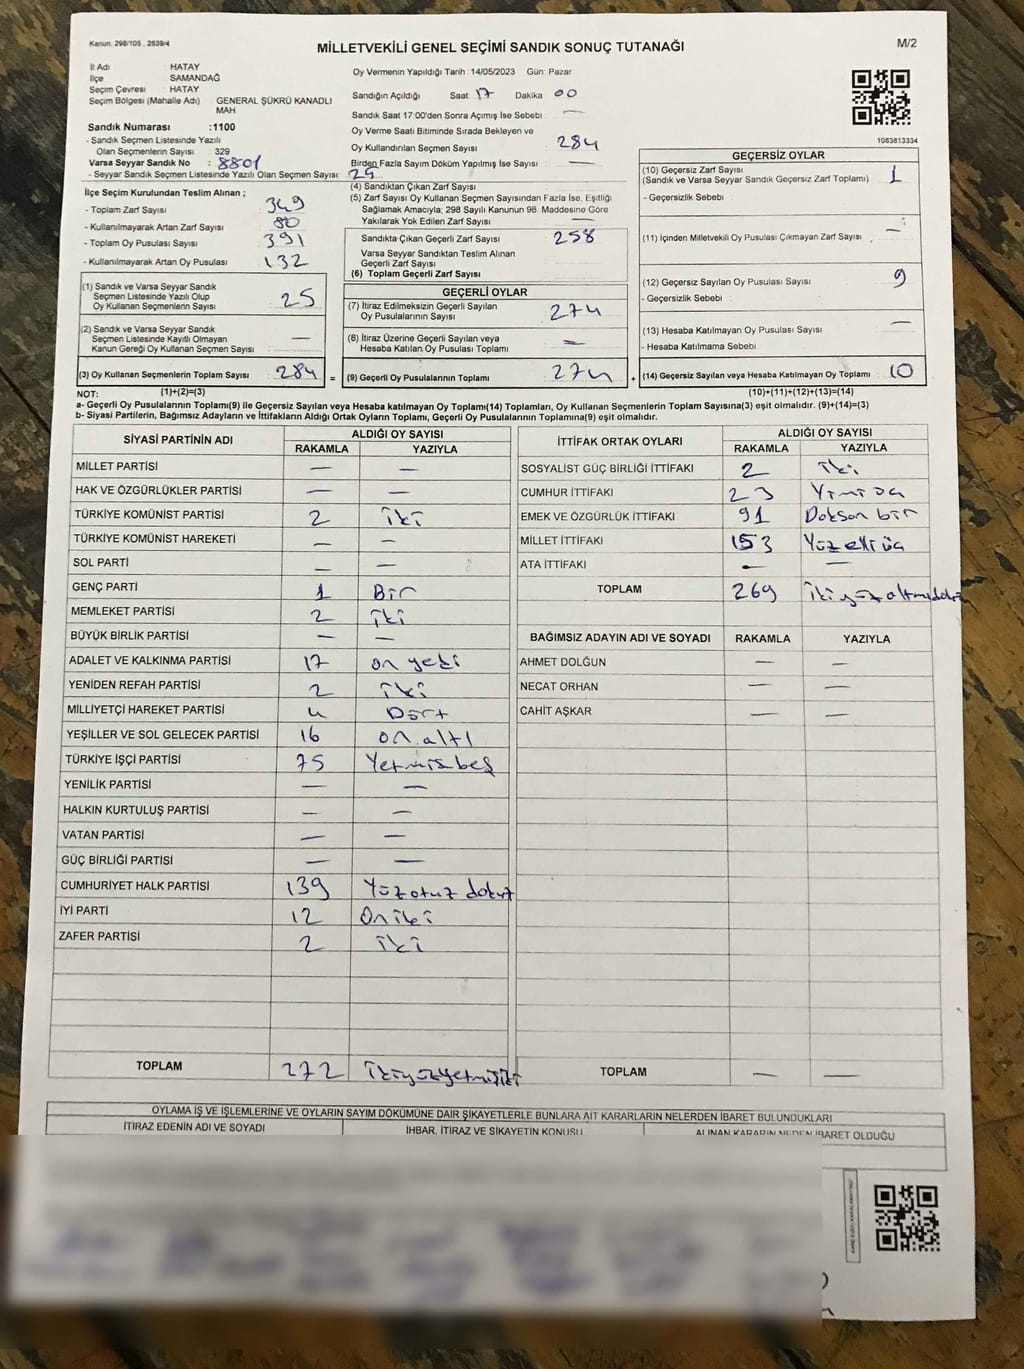 Kanun: 298/105 , 2839/4
MİLLETVEKİLİ GENEL SEÇİMİ SANDIK SONUÇ TUTANAĞI
M/2
İl Adı : HATAY
İlçe : SAMANDAĞ
Seçim Çevresi : HATAY
Seçim Bölgesi (Mahalle Adı) : GENERAL ŞÜKRÜ KANADLI MAH
Sandık Numarası :1100
- Sandık Seçmen Listesinde Yazılı
Olan Seçmenlerin Sayısı : 329
Varsa Seyyar Sandık No : 8801
- Seyyar Sandık Seçmen Listesinde Yazılı Olan Seçmen Sayısı: 25
İlçe Seçim Kurulundan Teslim Alınan ;
- Toplam Zarf Sayısı : 349
- Kullanılmayarak Artan Zarf Sayısı : 80
- Toplam Oy Pusulası Sayısı : 391
- Kullanılmayarak Artan Oy Pusulası : 132
(1) Sandık ve Varsa Seyyar Sandık
Seçmen Listesinde Yazılı Olup
Oy Kullanan Seçmenlerin Sayısı : 25
(2) Sandık ve Varsa Seyyar Sandık
Seçmen Listesinde Kayıtlı Olmayan
Kanun Gereği Oy Kullanan Seçmen Sayısı : —
(3) Oy Kullanan Seçmenlerin Toplam Sayısı : 284 =
Oy Vermenin Yapıldığı Tarih :14/05/2023 Gün: Pazar
Sandığın Açıldığı Saat :17 Dakika : 00
Sandık Saat 17:00'den Sonra Açımış İse Sebebi : —
Oy Verme Saati Bitiminde Sırada Bekleyen ve
Oy Kullandırılan Seçmen Sayısı : 284
Birden Fazla Sayım Döküm Yapılmış İse Sayısı : —
(4) Sandıktan Çıkan Zarf Sayısı :
(5) Zarf Sayısı Oy Kullanan Seçmen Sayısından Fazla İse, Eşitliği
Sağlamak Amacıyla; 298 Sayılı Kanunun 98. Maddesine Göre
Yakılarak Yok Edilen Zarf Sayısı : —
Sandıkta Çıkan Geçerli Zarf Sayısı : 258
Varsa Seyyar Sandıktan Teslim Alınan
Geçerli Zarf Sayısı :
(6) Toplam Geçerli Zarf Sayısı :
GEÇERLİ OYLAR
(7) İtiraz Edilmeksizin Geçerli Sayılan
Oy Pusulalarının Sayısı : 274
(8) İtiraz Üzerine Geçerli Sayılan veya
Hesaba Katılan Oy Pusulası Toplamı : —
(9) Geçerli Oy Pusulalarının Toplamı : 274 +
1063813334
GEÇERSİZ OYLAR
(10) Geçersiz Zarf Sayısı
(Sandık ve Varsa Seyyar Sandık Geçersiz Zarf Toplamı) : 1
- Geçersizlik Sebebi :
(11) İçinden Milletvekili Oy Pusulası Çıkmayan Zarf Sayısı : —
(12) Geçersiz Sayılan Oy Pusulası Sayısı : 9
- Geçersizlik Sebebi :
(13) Hesaba Katılmayan Oy Pusulası Sayısı : —
- Hesaba Katılmama Sebebi :
(14) Geçersiz Sayılan veya Hesaba Katılmayan Oy Toplamı : 10
NOT: (1)+(2)=(3) (10)+(11)+(12)+(13)=(14)
a- Geçerli Oy Pusulalarının Toplamı(9) ile Geçersiz Sayılan veya Hesaba katılmayan Oy Toplamı(14) Toplamları, Oy Kullanan Seçmenlerin Toplam Sayısına(3) eşit olmalıdır. (9)+(14)=(3)
b- Siyasi Partilerin, Bağımsız Adayların ve İttifakların Aldığı Ortak Oyların Toplamı, Geçerli Oy Pusulalarının Toplamına(9) eşit olmalıdır.
SİYASİ PARTİNİN ADI ALDIĞI OY SAYISI
RAKAMLA YAZIYLA
MİLLET PARTİSİ — —
HAK VE ÖZGÜRLÜKLER PARTİSİ — —
TÜRKİYE KOMÜNİST PARTİSİ 2 iki
TÜRKİYE KOMÜNİST HAREKETİ — —
SOL PARTİ — —
GENÇ PARTİ 1 Bir
MEMLEKET PARTİSİ 2 iki
BÜYÜK BİRLİK PARTİSİ — —
ADALET VE KALKINMA PARTİSİ 17 on yedi
YENİDEN REFAH PARTİSİ 2 iki
MİLLİYETÇİ HAREKET PARTİSİ 4 Dört
YEŞİLLER VE SOL GELECEK PARTİSİ 16 on altı
TÜRKİYE İŞÇİ PARTİSİ 75 Yetmişbeş
YENİLİK PARTİSİ — —
HALKIN KURTULUŞ PARTİSİ — —
VATAN PARTİSİ — —
GÜÇ BİRLİĞİ PARTİSİ — —
CUMHURİYET HALK PARTİSİ 139 Yüz otuz dokuz
İYİ PARTİ 12 On iki
ZAFER PARTİSİ 2 iki
TOPLAM 272 ikiyüzyetmişiki
İTTİFAK ORTAK OYLARI ALDIĞI OY SAYISI
RAKAMLA YAZIYLA
SOSYALİST GÜÇ BİRLİĞİ İTTİFAKI 2 iki
CUMHUR İTTİFAKI 23 Yirmi üç
EMEK VE ÖZGÜRLÜK İTTİFAKI 91 Doksan bir
MİLLET İTTİFAKI 153 Yüz elli üç
ATA İTTİFAKI — —
TOPLAM 269 iki yüz altmışdokuz
BAĞIMSIZ ADAYIN ADI VE SOYADI RAKAMLA YAZIYLA
AHMET DOLĞUN — —
NECAT ORHAN — —
CAHİT AŞKAR — —
TOPLAM — —
OYLAMA İŞ VE İŞLEMLERİNE VE OYLARIN SAYIM DÖKÜMÜNE DAİR ŞİKAYETLERLE BUNLARA AİT KARARLARIN NELERDEN İBARET BULUNDUKLARI
İTİRAZ EDENİN ADI VE SOYADI İHBAR, İTİRAZ VE ŞİKAYETİN KONUSU ALINAN KARARIN NEDEN İBARET OLDUĞU